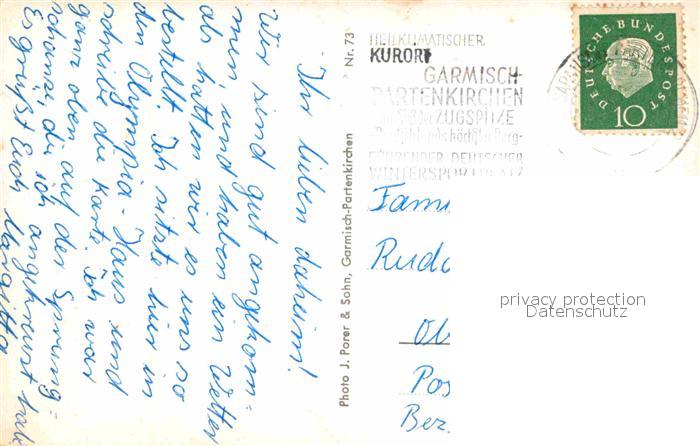 Ihr lieben daheim!
Wir sind gut angekom=
men, und haben ein Wetter
als hatten wir es uns so
bestellt. Ich sitze hier in
den Olympia-Haus und
schreibe die Karte. Ich war
ganz oben auf der Sprung=
schanze, die ich angekreuzt hab
Es grüßt Euch
Photo J. Porer & Sohn, Garmisch-Partenkirchen
Nr. 73
HEILKLIMATISCHER
KURORT
GARMISCH-
PARTENKIRCHEN
am Fuß der ZUGSPITZE
Deutschlands höchster Berg
FÜHRENDER DEUTSCHER
WINTERSPORTPLATZ
DEUTSCHE BUNDESPOST
10
Fami
Rudo
privacy protection
Datenschutz
Ob
Pos
Bez.